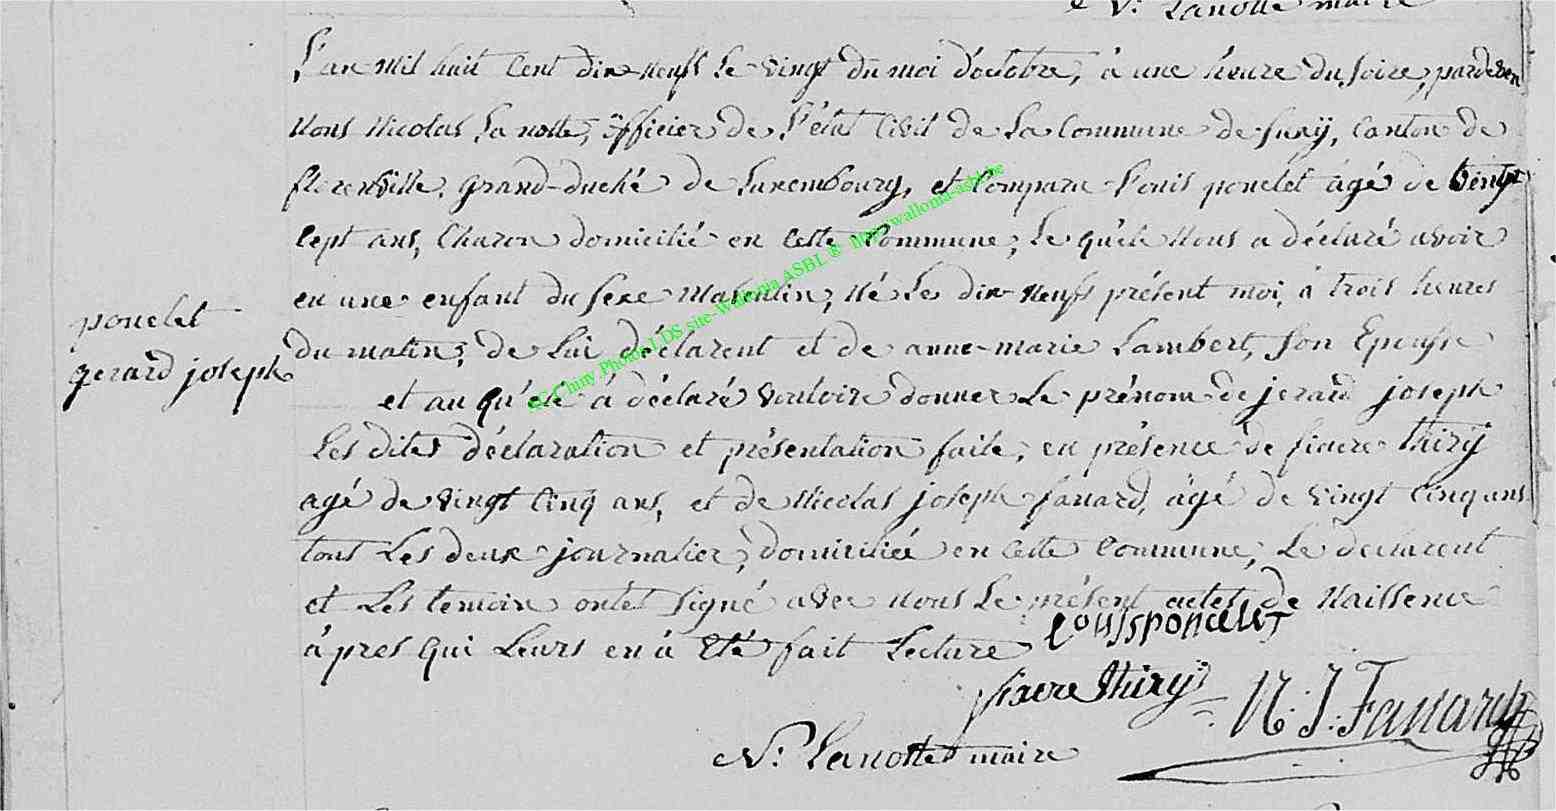 N: Lanotte maire
L'an mil huit Cent dix-neuf le vingt du moi d'octobre, à une heure du soire, pardeven
nous Nicolas Lanotte, officier de l'état Civil de la Commune de Suxÿ, Canton de
florenville, grand-duché de Luxembourg, et Comparu Louis poncelet âgé de vingt
sept ans, Charon domicilié en Cette Commune, le quele nous a déclaré avoir
eu une enfant du sexe Masculin, né le dix-neuf présent moi, à trois heures
du matin, de lui déclarent et de anne-marie Lambert, son Epouse
poncelet
gerard joseph
et au qu'ele à déclaré vouloire donner le prénom de jerard joseph
les dites déclaration et présentation faite, en présence de fiacre thirÿ
agé de vingt Cinq ans, et de Nicolas joseph fanard, âgé de vingt Cinq ans
tous les deux journalier, domiciliée en Cette Commune, le declarent
et les temoin ontet signé avec nous le présent actes de Naissence
àpres qui leurs en à été fait lecture
Louis poncelet
fiacre thiry
N. J. Fanard
N: Lanotte maire
© Chiny Photos LDS site-Wallonia ASBL ® Marc wallonia-asbl.be